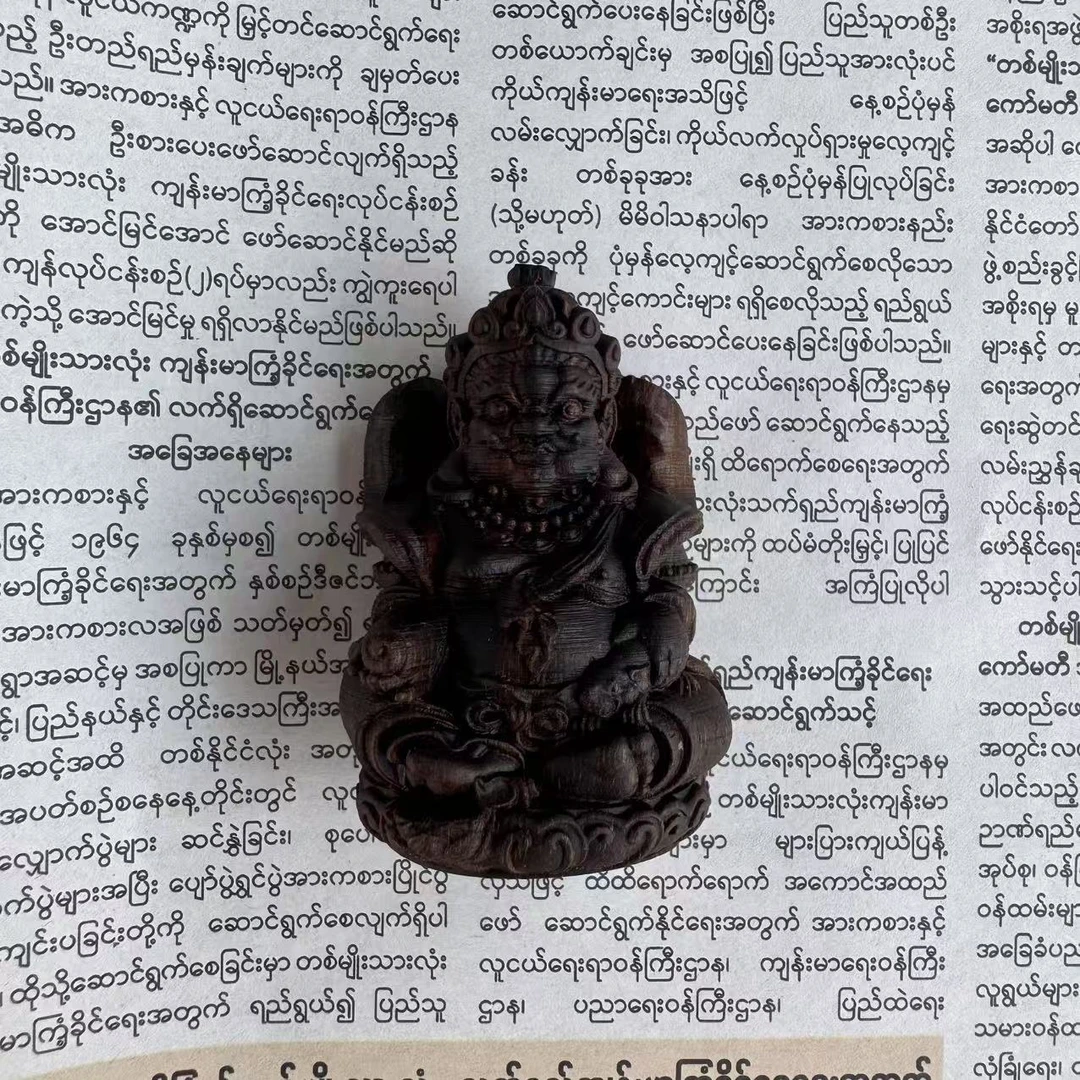 ကဏ္ဍကို မြှင့်တင်ဆောင်ရွက်ရေး
ဦးတည်ရည်မှန်းချက်များကို ချမှတ်ပေး
သည်။ အားကစားနှင့် လူငယ်ရေးရာဝန်ကြီးဌာန
အဓိက ဦးစားပေးဖော်ဆောင်လျက်ရှိသည့်
မျိုးသားလုံး ကျန်းမာကြံ့ခိုင်ရေးလုပ်ငန်းစဉ်
ကို အောင်မြင်အောင် ဖော်ဆောင်နိုင်မည်ဆို
ကျန်လုပ်ငန်းစဉ်(၂)ရပ်မှာလည်း ကျွဲကူးရေပါ
ကဲ့သို့ အောင်မြင်မှု ရရှိလာနိုင်မည်ဖြစ်ပါသည်။
စ်မျိုးသားလုံး ကျန်းမာကြံ့ခိုင်ရေးအတွက်
ဝန်ကြီးဌာန၏ လက်ရှိဆောင်ရွက်
အခြေအနေများ
အားကစားနှင့် လူငယ်ရေးရာဝန်
ဖြင့် ၁၉၆၄ ခုနှစ်မှစ၍ တစ်မျိုး
မာကြံ့ခိုင်ရေးအတွက် နှစ်စဉ်ဒီဇင်ဘ
အားကစားလအဖြစ် သတ်မှတ်၍
ရွာအဆင့်မှ အစပြုကာ မြို့နယ်အ
ပြည်နယ်နှင့် တိုင်းဒေသကြီးအ
အဆင့်အထိ တစ်နိုင်ငံလုံး
အပတ်စဉ်စနေနေ့တိုင်းတွင်
လျှောက်ပွဲများ ဆင်နွှဲခြင်း၊ စုပေ
က်ပွဲများအပြီး ပျော်ပွဲရွှင်ပွဲအားကစားပြိုင်ပွဲ
ကျင်းပခြင်းတို့ကို ဆောင်ရွက်စေလျက်ရှိပါ
ထိုသို့ဆောင်ရွက်စေခြင်းမှာ တစ်မျိုးသားလုံး
မာကြံ့ခိုင်ရေးအတွက် ရည်ရွယ်၍ ပြည်သူ
ဆောင်ရွက်ပေးနေခြင်းဖြစ်ပြီး ပြည်သူတစ်ဦး
တစ်ယောက်ချင်းမှ အစပြု၍ ပြည်သူအားလုံးပင်
ကိုယ်ကျန်းမာရေးအသိဖြင့် နေ့စဉ်ပုံမှန်
လမ်းလျှောက်ခြင်း၊ ကိုယ်လက်လှုပ်ရှားမှုလေ့ကျင့်
ခန်း တစ်ခုခုအား နေ့စဉ်ပုံမှန်ပြုလုပ်ခြင်း
(သို့မဟုတ်) မိမိဝါသနာပါရာ အားကစားနည်း
တစ်ခုခုကို ပုံမှန်လေ့ကျင့်ဆောင်ရွက်စေလိုသော
ကျင့်ကောင်းများ ရရှိစေလိုသည့် ရည်ရွယ်
ဖော်ဆောင်ပေးနေခြင်းဖြစ်ပါသည်။
နှင့် လူငယ်ရေးရာဝန်ကြီးဌာနမှ
ည်ဖော် ဆောင်ရွက်နေသည့်
ရှိ ထိရောက်စေရေးအတွက်
လုံးသက်ရှည်ကျန်းမာကြံ့
များကို ထပ်မံတိုးမြှင့်၊ ပြုပြင်
ကြောင်း အကြံပြုလိုပါ
ရှည်ကျန်းမာကြံ့ခိုင်ရေး
ဆောင်ရွက်သင့်
ငယ်ရေးရာဝန်ကြီးဌာနမှ
တစ်မျိုးသားလုံးကျန်းမာ
များပြားကျယ်ပြန့်
ထိထိရောက်ရောက် အကောင်အထည်
ဖော် ဆောင်ရွက်နိုင်ရေးအတွက် အားကစားနှင့်
လူငယ်ရေးရာဝန်ကြီးဌာန၊ ကျန်းမာရေးဝန်ကြီး
ဌာန၊ ပညာရေးဝန်ကြီးဌာန၊ ပြည်ထဲရေး
အစိုးရအဖွဲ့
“တစ်မျိုးသ
ကော်မတီ
အဆိုပါ
အားကစာ
နိုင်ငံတော်
ဖွဲ့စည်းခွင့်
အစိုးရမှ
များနှင့်
ရေးအတွက်
ရေးဆွဲတင်
လမ်းညွှန်
လုပ်ငန်းစဉ်
ဖော်နိုင်ရေး
သွားသင့်ပါ
တစ်မျိုး
ကော်မတီ
အထည်ဖေ
အတွင်း
ပါဝင်သည့်
ဉာဏ်ရည်
အုပ်စု၊ ဝန်ကြီး
ဝန်ထမ်းများ
အခြေခံပည
လူရွယ်များ
သမားဝန်ထ
လုံခြုံရေး၊